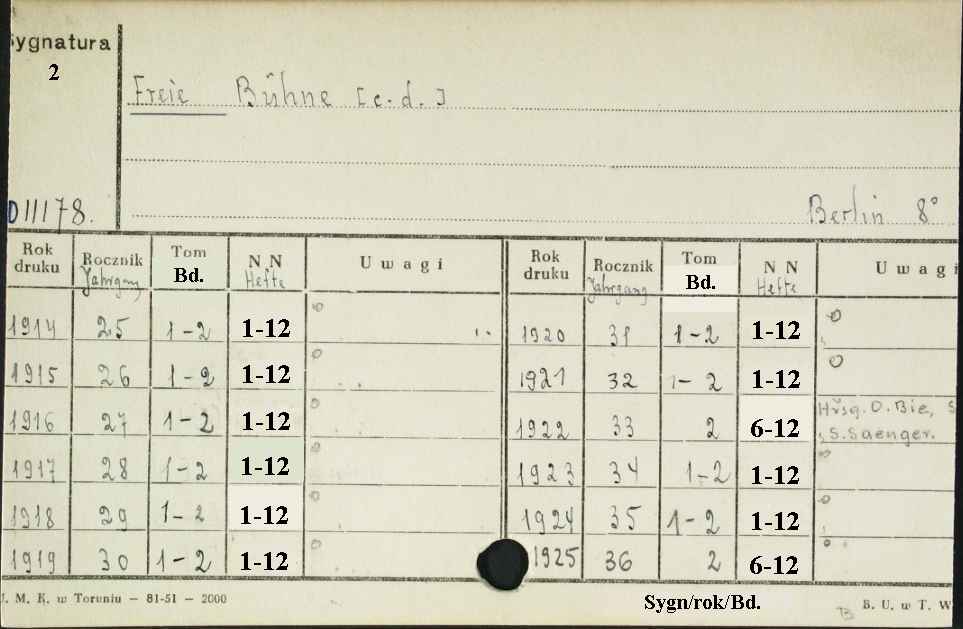 Sygnatura
2
Freie Bühne [c.d.]
D III 178.
Berlin 8°
Rok druku Rocznik Jahrgang Tom Bd. N N Hefte Uwagi Rok druku Rocznik Jahrgang Tom Bd. N N Hefte Uwagi
1914 25 1-2 1-12 1920 31 1-2 1-12
1915 26 1-2 1-12 1921 32 1-2 1-12
1916 27 1-2 1-12 1922 33 2 6-12 Hrsg. O. Bie, S
S. Saenger.
1917 28 1-2 1-12 1923 34 1-2 1-12
1918 29 1-2 1-12 1924 35 1-2 1-12
1919 30 1-2 1-12 1925 36 2 6-12
J. M. K. w Toruniu — 81-51 — 2000 Sygn/rok/Bd. B. U. w T. W